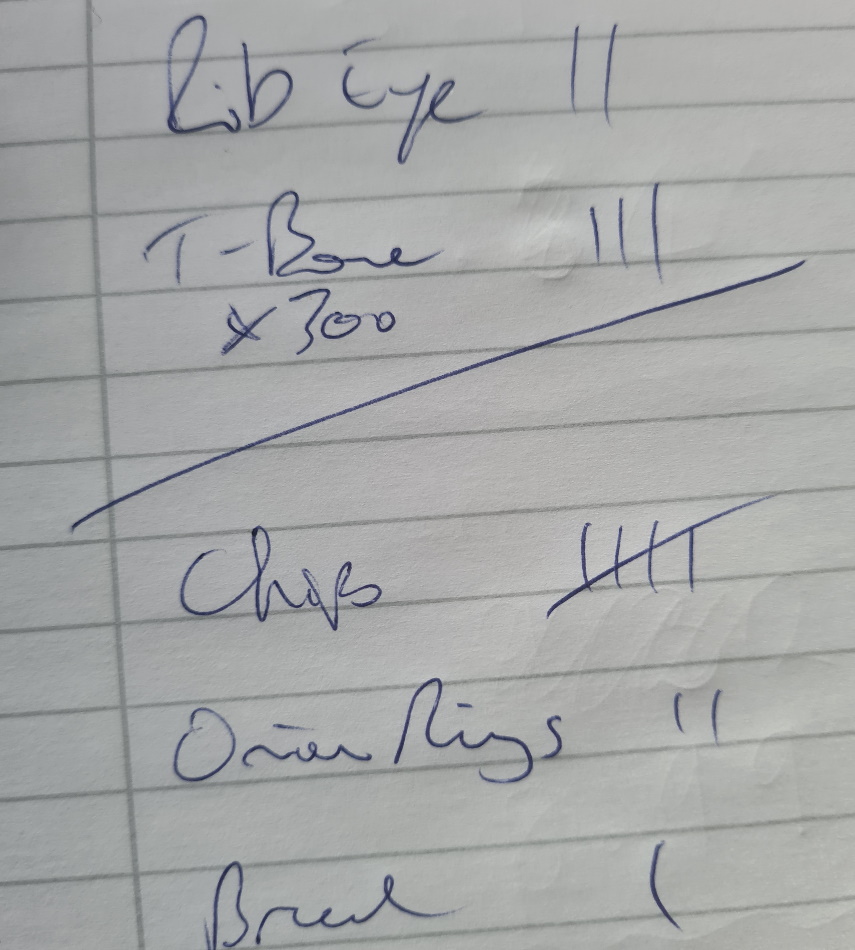 Rib Eye ||
T-Bone |||
x 300
Chips 卌
Onion Rings ||
Bread |